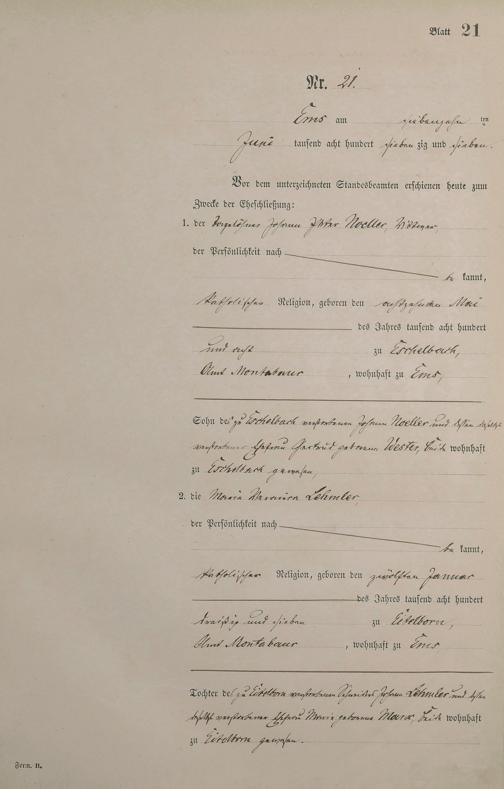 Blatt 21
Nr. 21.
Ems am siebenzehn ten
Juni tausend acht hundert sieben zig und sieben.
Vor dem unterzeichneten Standesbeamten erschienen heute zum
Zwecke der Eheschließung:
1. der Johann Peter Noeller, Wittwer,
der Persönlichkeit nach
be kannt,
katholischer Religion, geboren den achtzehnten Mai
des Jahres tausend acht hundert
und acht zu Eschelbach,
Amt Montabaur, wohnhaft zu Ems,
Sohn des zu Eschelbach verstorbenen Johann Noeller und dessen daselbst
verstorbener Ehefrau Gertrud geborene Wester, beide wohnhaft
zu Eschelbach gewesen,
2. die Maria Lehmler,
der Persönlichkeit nach
be kannt,
katholischer Religion, geboren den zwölften Januar
des Jahres tausend acht hundert
dreißig und sieben zu Eitelborn,
Amt Montabaur, wohnhaft zu Ems,
Tochter des zu Eitelborn verstorbenen Schneiders Johann Lehmler und dessen
daselbst verstorbener Ehefrau Maria geborene Marx, beide wohnhaft
zu Eitelborn gewesen.
Form. B.